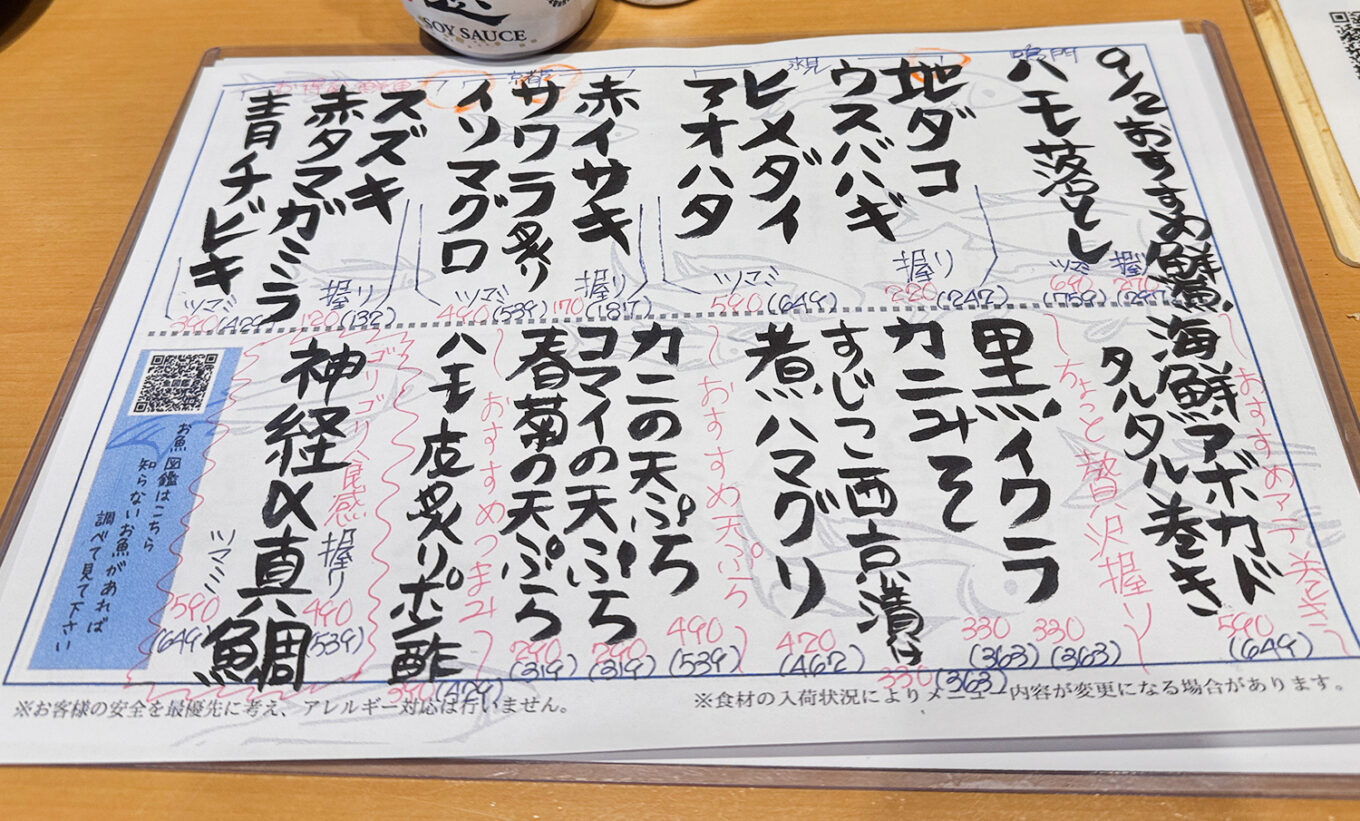 SOY SAUCE
9/12おすすめ鮮魚
鳴門
ハモ落とし
ツマミ 690 (759)
握り 270 (297)
地ダコ
ウスバハギ
握り 220 (242)
氷見
ヒメダイ
アオハタ
ツマミ 590 (649)
赤イサキ
京都
サワラ炙り
イソマグロ
握り 170 (187)
ツマミ 490 (539)
スズキ
赤タマガミラ
青チビキ
握り 120 (132)
ツマミ 390 (429)
おすすめアテ巻き
海鮮アボカド
タルタル巻き
590 (649)
ちょっと贅沢握り
黒イクラ
330 (363)
カニみそ
330 (363)
すじこ西京漬け
330 (363)
煮ハマグリ
420 (462)
おすすめ天ぷら
カニの天ぷら
490 (539)
コマイの天ぷら
290 (319)
春菊の天ぷら
290 (319)
おすすめつまみ
ハモ皮炙りポン酢
390 (429)
ゴリゴリ食感
神経〆真鯛
握り 490 (539)
ツマミ 590 (649)
お魚図鑑はこちら
知らないお魚があれば
調べて見て下さい
※食材の入荷状況によりメニュー内容が変更になる場合があります。
※お客様の安全を最優先に考え、アレルギー対応は行いません。